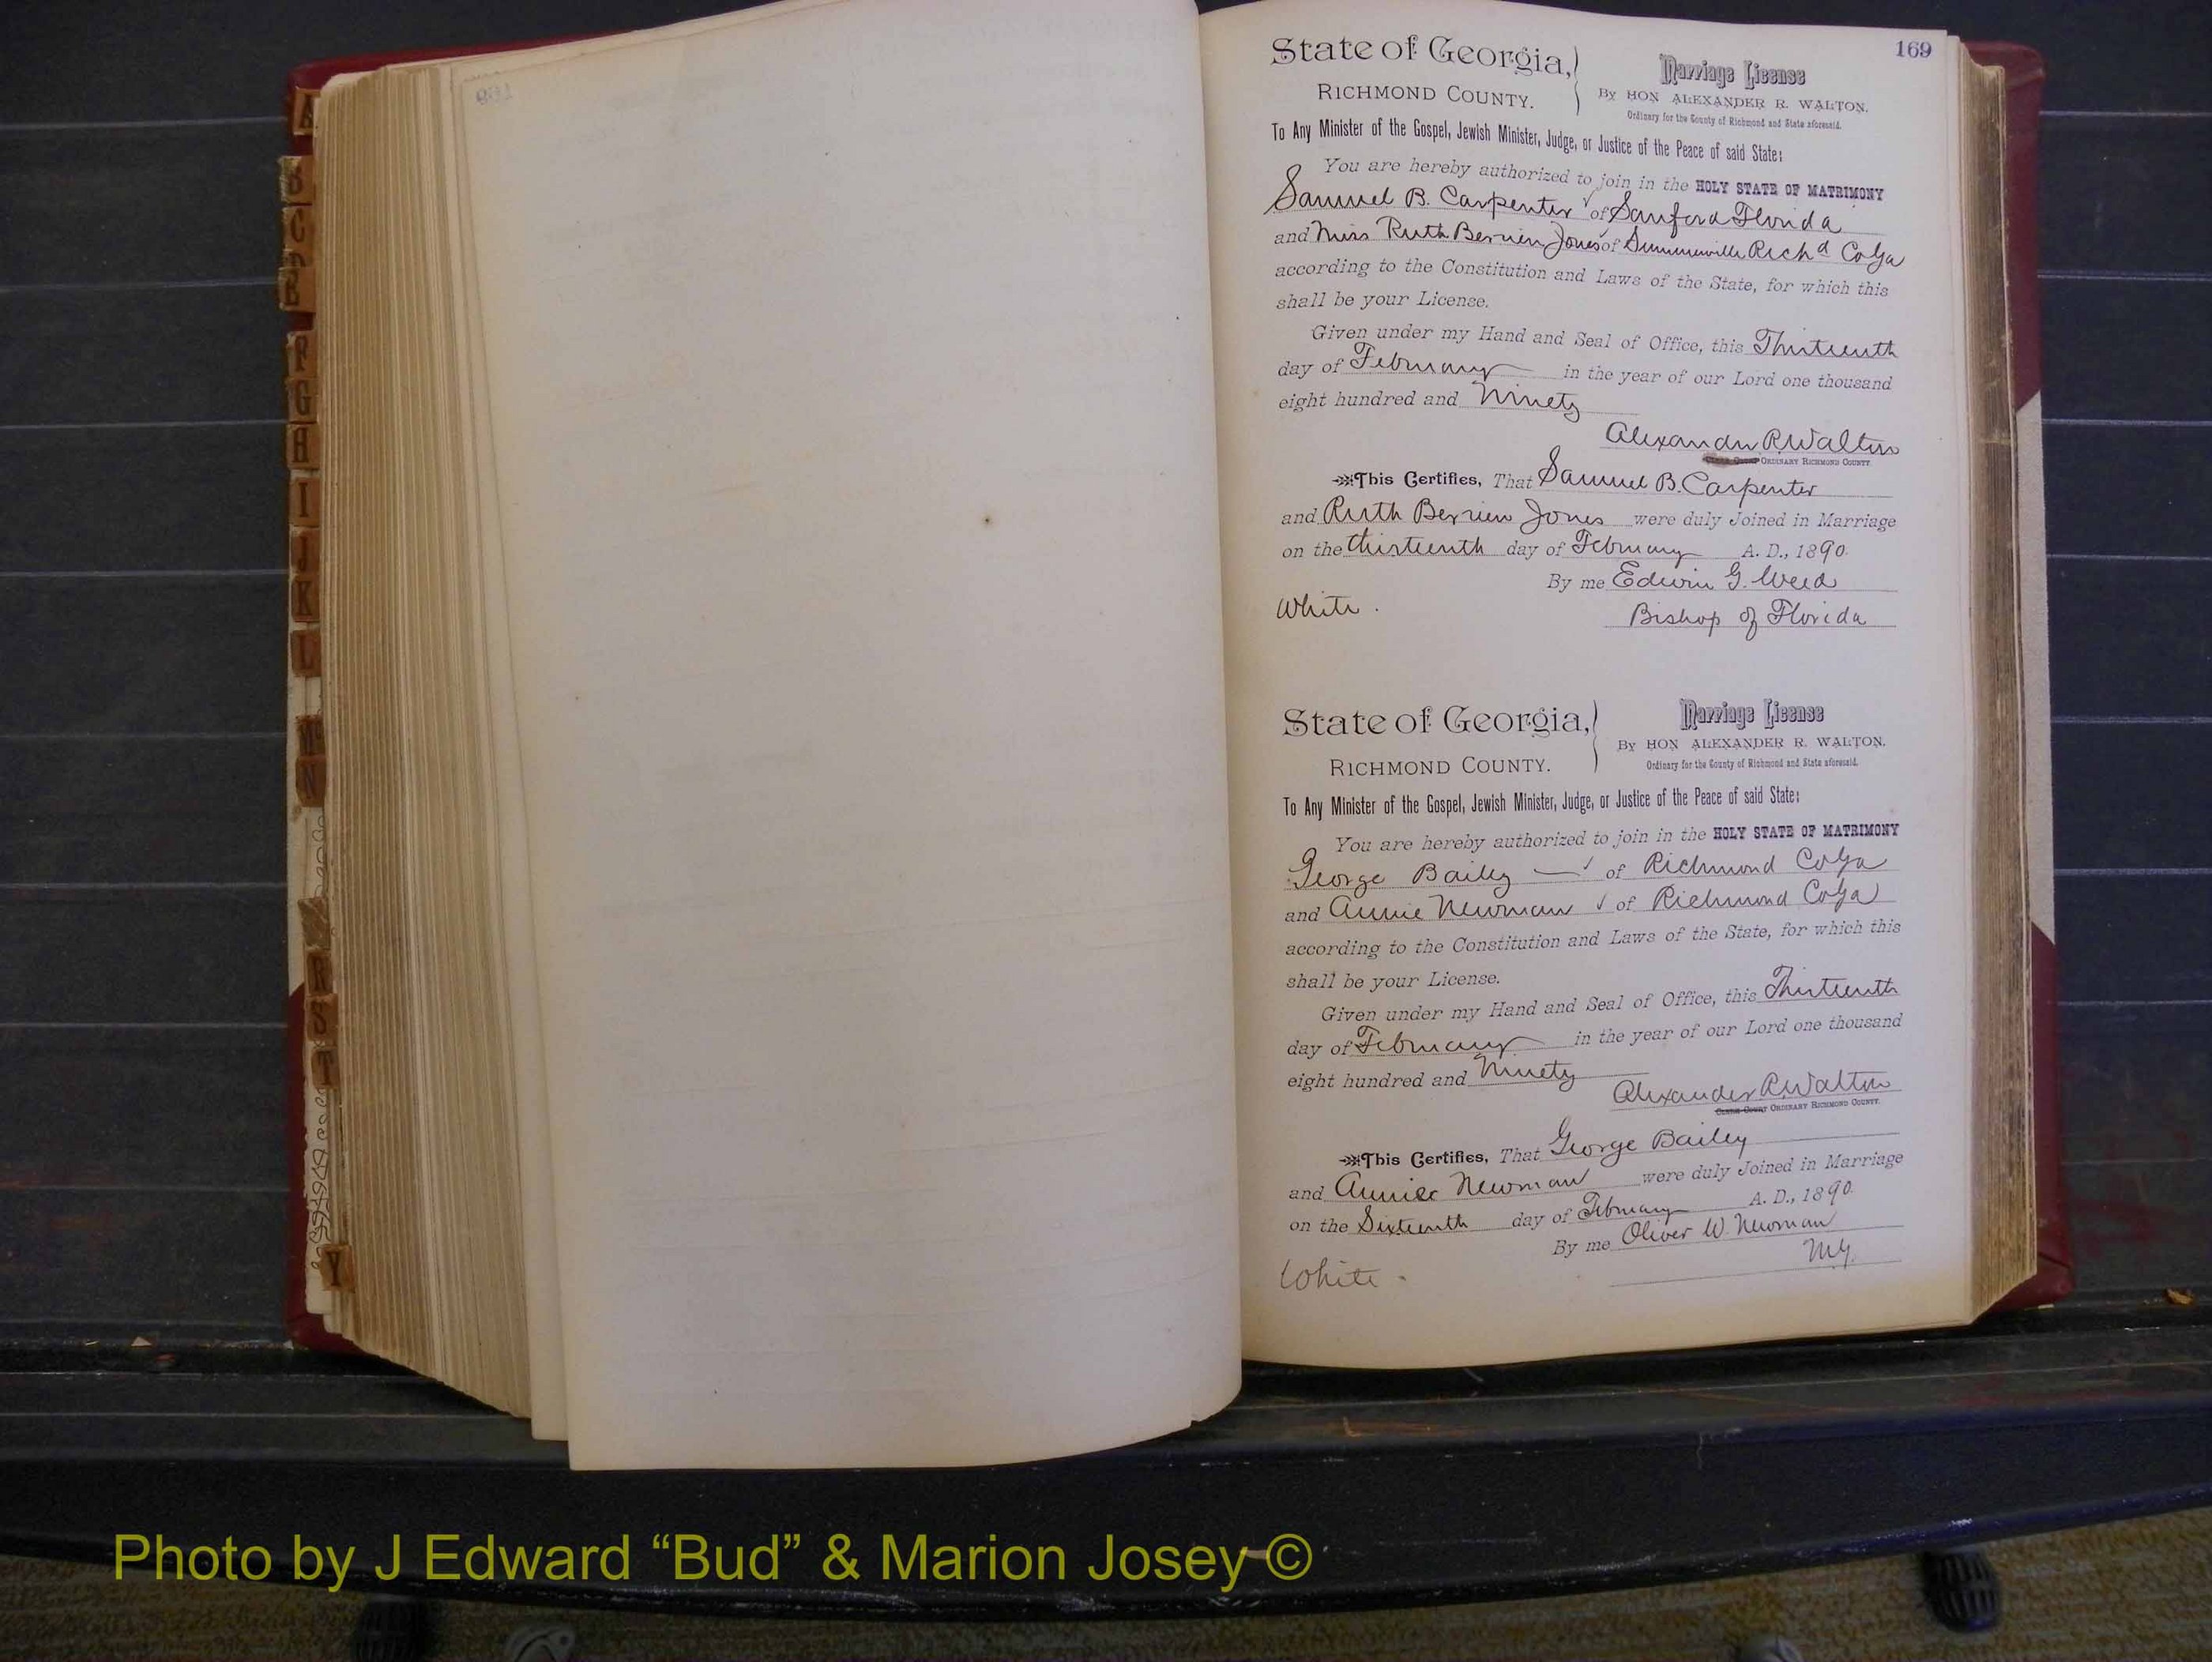 169
State of Georgia,
RICHMOND COUNTY.
Marriage License
By HON ALEXANDER R. WALTON,
Ordinary for the County of Richmond and State aforesaid.
To Any Minister of the Gospel, Jewish Minister, Judge, or Justice of the Peace of said State:
You are hereby authorized to join in the HOLY STATE OF MATRIMONY
Samuel B. Carpenter of Sanford Florida
and Miss Ruth Berrien Jones of Summerville Richd Co Ga
according to the Constitution and Laws of the State, for which this
shall be your License.
Given under my Hand and Seal of Office, this Thirteenth
day of February in the year of our Lord one thousand
eight hundred and Ninety
Alexander R. Walton
CLERK COURT ORDINARY RICHMOND COUNTY.
This Certifies, That Samuel B. Carpenter
and Ruth Berrien Jones were duly Joined in Marriage
on the thirteenth day of February A. D., 1890.
By me Edwin G. Weed
White. Bishop of Florida
State of Georgia,
RICHMOND COUNTY.
Marriage License
By HON ALEXANDER R. WALTON,
Ordinary for the County of Richmond and State aforesaid.
To Any Minister of the Gospel, Jewish Minister, Judge, or Justice of the Peace of said State:
You are hereby authorized to join in the HOLY STATE OF MATRIMONY
George Bailey of Richmond Co Ga
and Annie Newman of Richmond Co Ga
according to the Constitution and Laws of the State, for which this
shall be your License.
Given under my Hand and Seal of Office, this Thirteenth
day of February in the year of our Lord one thousand
eight hundred and Ninety
Alexander R. Walton
CLERK COURT ORDINARY RICHMOND COUNTY.
This Certifies, That George Bailey
and Annie Newman were duly Joined in Marriage
on the Sixteenth day of February A. D., 1890.
By me Oliver W. Newman
M.G.
White.
A
B
C
D
E
F
G
H
I
J
K
L
Mc
N
R
S
T
Y
Photo by J Edward “Bud” & Marion Josey ©